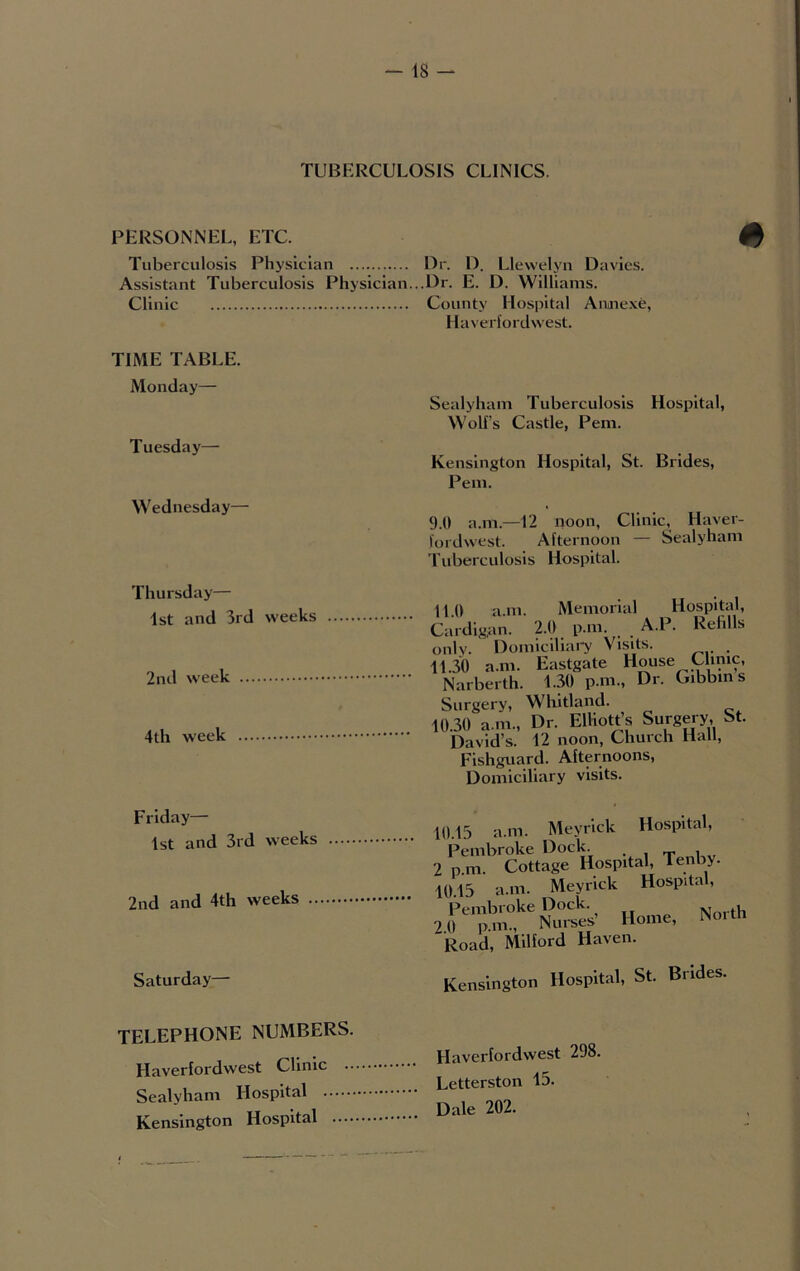 — 18 —
TUBERCULOSIS CLINICS.
PERSONNEL, ETC.
Tuberculosis Physician ........... Dr. D. Llewelyn Davies.
Assistant Tuberculosis Physician...Dr. E. D. Williams.
Clinic ................................. County Hospital Annexe,
Haverfordwest.
TIME TABLE.
Monday—
Sealyham Tuberculosis Hospital,
Wolf's Castle, Pem.
Tuesday—
Kensington Hospital, St. Brides,
Pem.
Wednesday—
9.0 a.m.—12 noon, Clinic, Haver-
fordwest. Afternoon — Sealyham
Tuberculosis Hospital.
Thursday—
1st and 3rd weeks .............. 11.0 a.m. Memorial Hospital,
Cardigan. 2.0 p.m. A.P. Refills
only. Domiciliary Visits.
2nd week ............................ 11.30 a.m. Eastgate House Clinic,
Narberth. 1.30 p.m., Dr. Gibbin's
Surgery, Whitland.
4th week ............................ 10.30 a.m., Dr. Elliott's Surgery, St.
David's. 12 noon, Church Hall,
Fishguard. Afternoons,
Domiciliary visits.
Friday—
1st and 3rd weeks .............. 10.15 a.m. Meyrick Hospital,
Pembroke Dock.
2 p.m. Cottage Hospital, Tenby.
2nd and 4th weeks ................. 10.15 a.m. Meyrick Hospital,
Pembroke Dock.
2.0 p.m., Nurses' Home, North
Road, Milford Haven.
Saturday— Kensington Hospital, St. Brides.
TELEPHONE NUMBERS.
Haverfordwest Clinic ............ Haverfordwest 298.
Sealyham Hospital ................. Letterston 15.
Kensington Hospital .............. Dale 202.